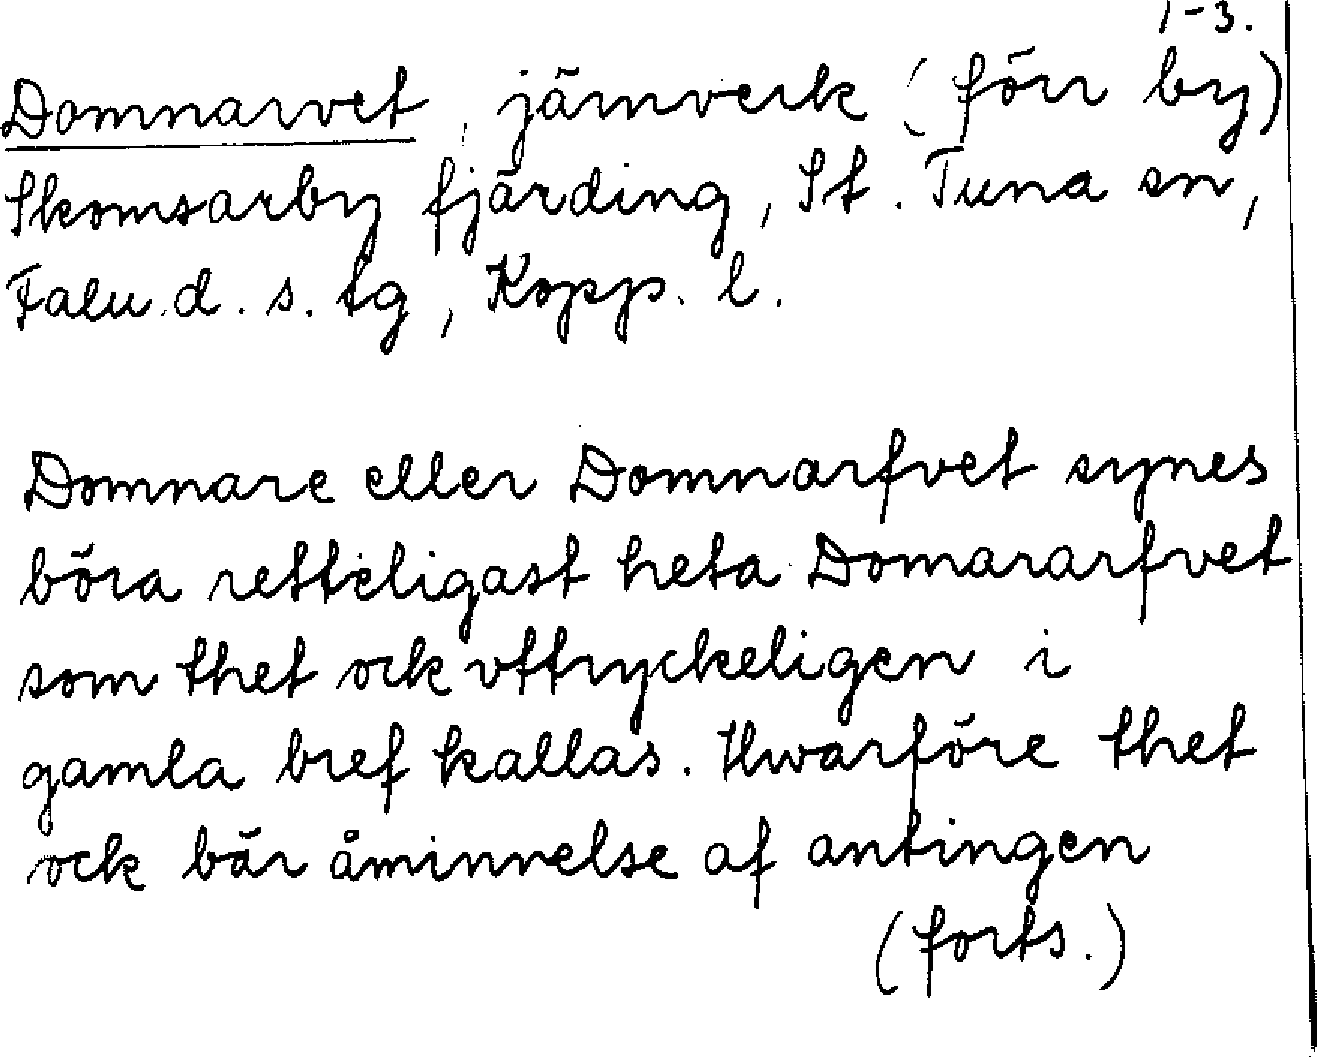 1-3.
Domnarvet, järnverk (förr by)
Skomsarby fjärding, St. Tuna sn,
Falu d. s. tg, Kopp. l.
Domnare eller Domnarfvet synes
böra retteligast heta Domararfvet
som thet ock vttryckeligen i
gamla bref kallas. Hwarföre thet
ock bär åminnelse af antingen
(forts.)